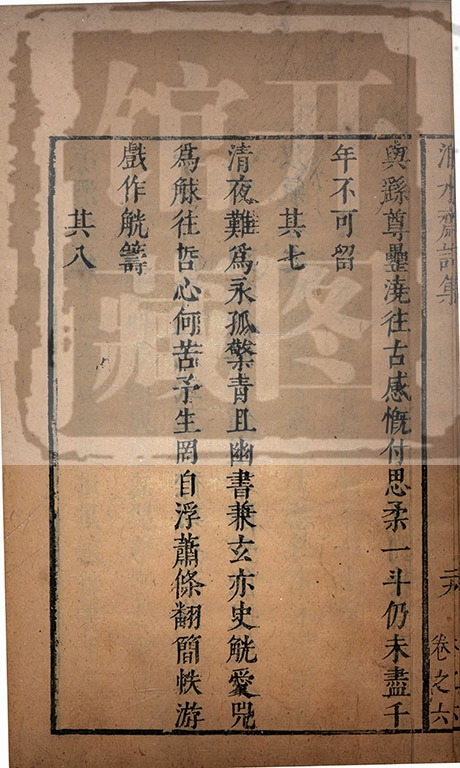 與繇尊罍澆往古感慨付思柔一斗仍未盡千
年不可留
其七
清夜難為永孤檠青且幽書兼玄亦史觥愛兕
為觩往哲心何苦予生罔自浮蕭條翻簡帙游
戲作觥籌
其八
卷之六
开图
馆藏